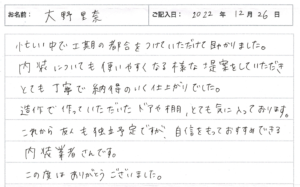 お名前: 大野里奈 ご記入日: 2022年12月26日
忙しい中で工期の都合をつけていただけて助かりました。
内装についても使いやすくなる様な提案をしていただき
とても丁寧で納得のいく仕上がりでした。
造作で作っていただいたドアや棚、とても気に入っております。
これから友人も独立予定ですが、自信をもっておすすめできる
内装業者さんです。
この度はありがとうございました。